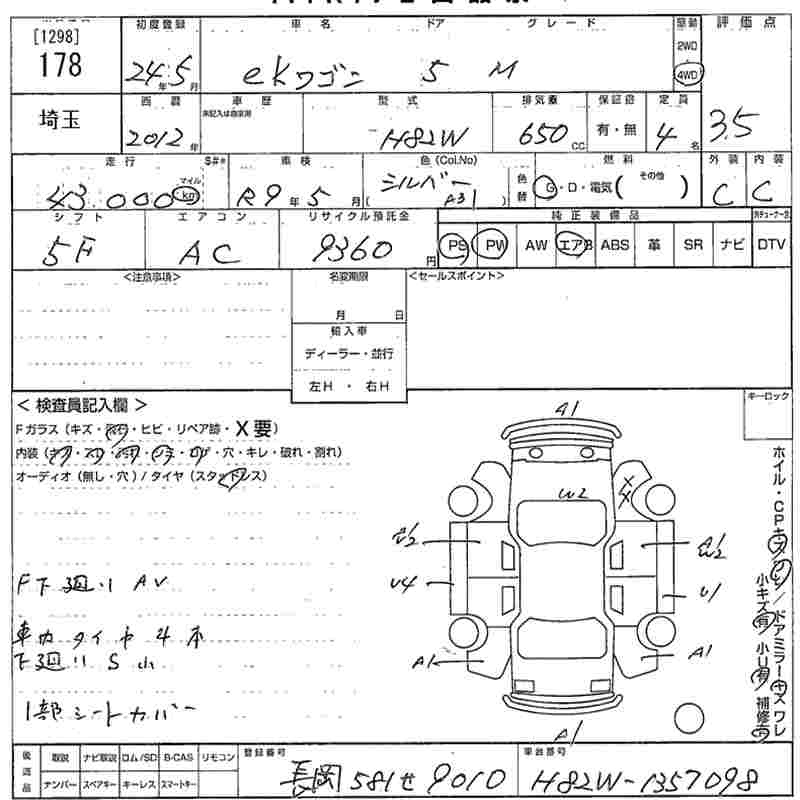 [1298]
178
埼玉
初度登録 車名 ドア グレード 駆動
24年5月 ekワゴン 5 M 2WD 4WD
評価点
3.5
西暦 車歴 型式 排気量 保証書 定員
未記入は自家用
2012年 H82W 650CC 有・無 4名
走行 S#* 車検 色(Col.No) 燃料 外装 内装
43,000 マイル km R9年5月 シルバー (A31) 色替 G・D・電気( その他 ) C C
シフト エアコン リサイクル預託金 純正装備品
5F AC 9360円 PS PW AW エアB ABS 革 SR ナビ DTV
<注意事項> 名変期限 <セールスポイント>
月 日
輸入車
ディーラー・並行
左H・右H
<検査員記入欄> キーロック
Fガラス(キズ・飛石・ヒビ・リペア跡・X要)
オーディオ(無し・穴)/タイヤ(スタッドレス)
F下廻り AV
車内タイヤ4本
下廻りS小
1部シートカバー
A1
W2
XX
U4
U1
A1
A1
A1
ホイル・CPキズ
ドアミラーキズワレ
小キズ有 小U有 補修有
後送品 取説 ナビ取説 ロム/SD B-CAS リモコン
ナンバー スペアキー キーレス スマートキー
登録番号
長岡 581せ9010
車台番号
H82W-1357098